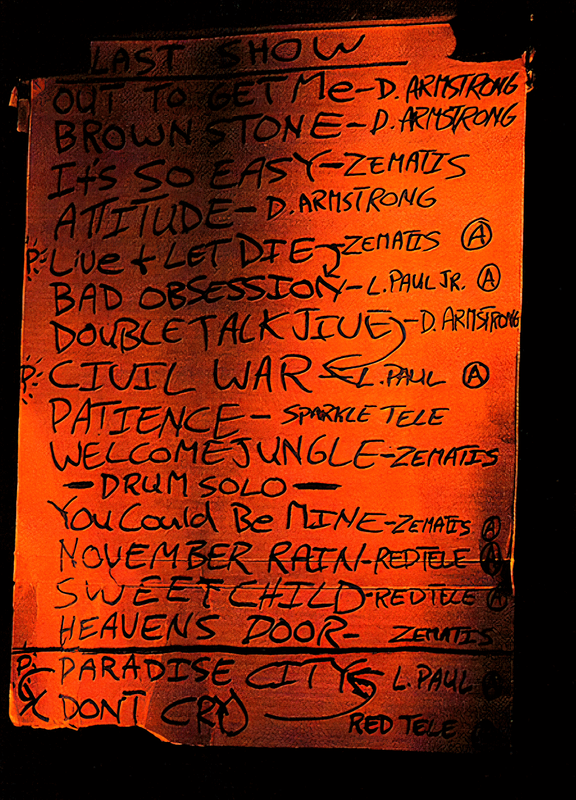 LAST SHOW
OUT TO GET Me - D. ARMSTRONG
BROWNSTONE - D. ARMSTRONG
It's SO EASY - ZEMATIS
ATTITUDE - D. ARMSTRONG
P. Live + LET DIE - ZEMATIS A
BAD OBSESSION - L. PAUL JR. A
DOUBLE TALK JIVE - D. ARMSTRONG
P. CIVIL WAR - L. PAUL A
PATIENCE - SPARKLE TELE
WELCOME JUNGLE - ZEMATIS
- DRUM SOLO -
You Could Be MINE - ZEMATIS A
NOVEMBER RAIN - RED TELE A
SWEET CHILD - RED TELE A
HEAVENS DOOR - ZEMATIS
P. PARADISE CITY L. PAUL
X DONT CRY RED TELE